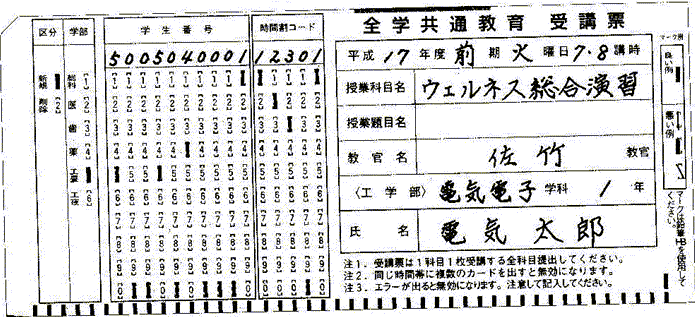 区分 学部 学生番号 時間割コード
5005040001 12301
新規 [1] 総科 [1]
削除 [2] 医 [2]
歯 [3]
薬 [4]
工昼
工夜 [6]
全学共通教育 受講票
平成 17 年度 前 期 火 曜日 7・8 講時
授業科目名 ウェルネス総合演習
授業題目名
教官名 佐竹 教官
〈工学部〉 電気電子 学科 1 年
氏名 電気太郎
注1．受講票は1科目1枚受講する全科目提出してください。
注2．同じ時間帯に複数のカードを出すと無効になります。
注3．エラーが出ると無効になります。注意して記入してください。
マーク例
良い例
悪い例
マークは鉛筆HBを使用してください。